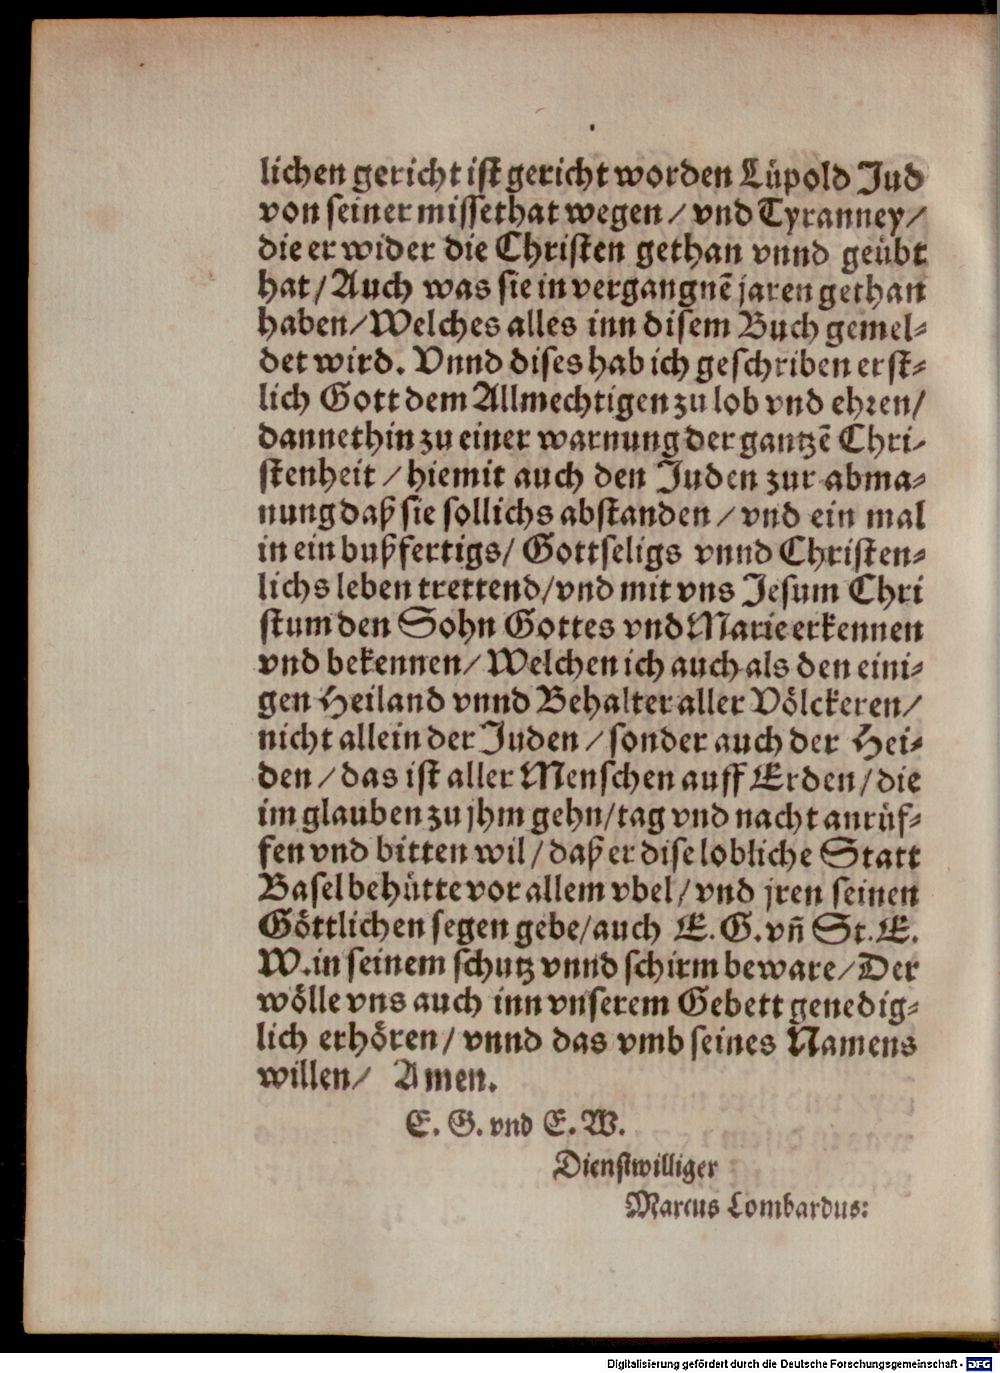 lichen gericht ist gericht worden Lüpold Jud
von seiner missethat wegen / vnd Tyranney /
die er wider die Christen gethan vnnd geübt
hat / Auch was sie in vergangnē jaren gethan
haben / Welches alles inn disem Buch gemel-
det wird. Vnnd dises hab ich geschriben erst-
lich Gott dem Allmechtigen zu lob vnd ehren /
dannethin zu einer warnung der gantzē Chri-
stenheit / hiemit auch den Juden zur abma-
nung daß sie sollichs abstanden / vnd ein mal
in ein bußfertigs / Gottseligs vnnd Christen-
lichs leben trettend / vnd mit vns Jesum Chri
stum den Sohn Gottes vnd Marie erkennen
vnd bekennen / Welchen ich auch als den eini-
gen Heiland vnnd Behalter aller Völckeren /
nicht allein der Juden / sonder auch der Hei-
den / das ist aller Menschen auff Erden / die
im glauben zu jhm gehn / tag vnd nacht anrüf-
fen vnd bitten wil / daß er dise lobliche Statt
Basel behütte vor allem vbel / vnd jren seinen
Göttlichen segen gebe / auch E. G. vñ St. E.
W. in seinem schutz vnnd schirm beware / Der
wölle vns auch inn vnserem Gebett genedig-
lich erhören / vnnd das vmb seines Namens
willen / Amen.
E. G. vnd E. W.
Dienstwilliger
Marcus Lombardus:
Digitalisierung gefördert durch die Deutsche Forschungsgemeinschaft - DFG